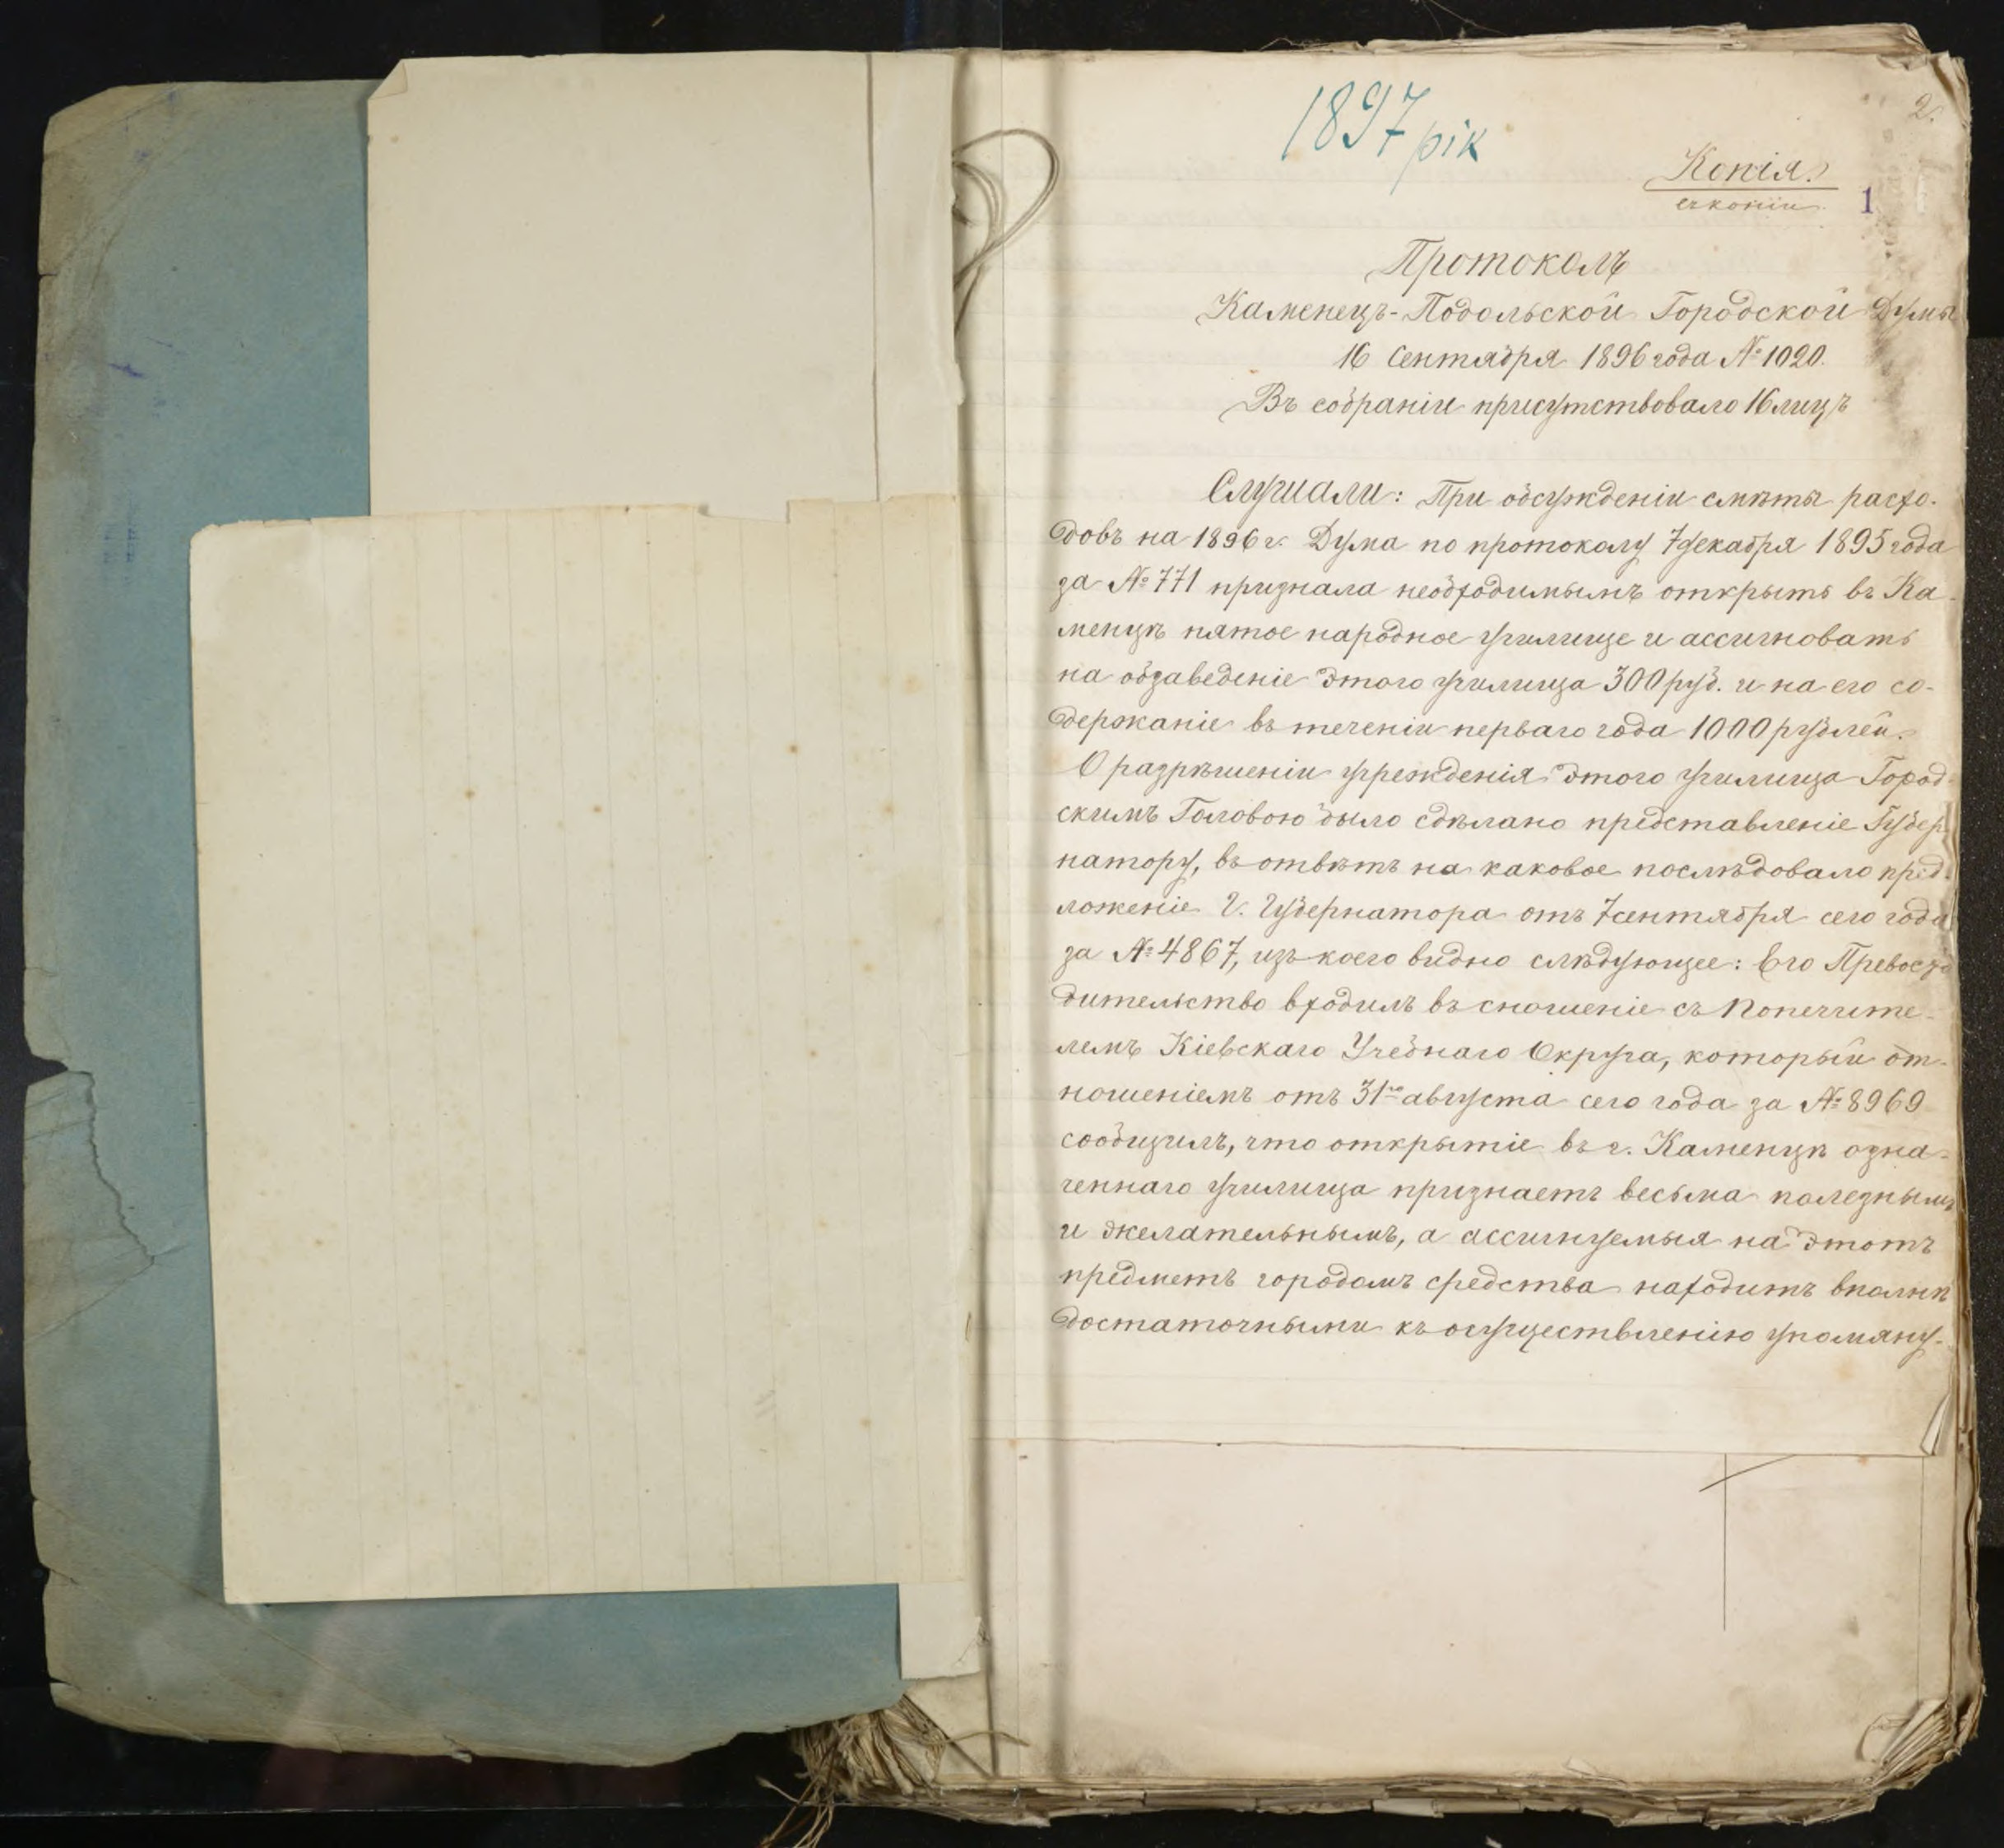 1897 рік
2.
Копія
съ копіи
1
Протоколъ
Каменецъ-Подольской Городской Думы
16 Сентября 1896 года № 1020.
Въ собраніи присутствовало 16 лицъ
Слушали: При обсужденіи смѣты расхо-
довъ на 1896 г. Дума по протоколу 7 декабря 1895 года
за № 771 признала необходимымъ открыть въ Ка-
менцѣ пятое народное училище и ассигновать
на обзаведеніе этого училища 300 руб. и на его со-
держаніе въ теченіи перваго года 1000 рублей.
О разрѣшеніи учрежденія этого училища Город-
скимъ Головою было сдѣлано представленіе Губер-
натору, въ отвѣтъ на каковое послѣдовало пред-
ложеніе Г. Губернатора отъ 7 сентября сего года
за № 4867, изъ коего видно слѣдующее: Его Превосхо
дительство входилъ въ сношеніе съ Попечите-
лемъ Кіевскаго Учебнаго Округа, который от-
ношеніемъ отъ 31го августа сего года за № 8969
сообщилъ, что открытіе въ г. Каменцѣ озна-
ченнаго училища признаетъ весьма полезнымъ
и желательнымъ, а ассигнуемыя на этотъ
предметъ городомъ средства находитъ вполнѣ
достаточными къ осуществленію упомяну-